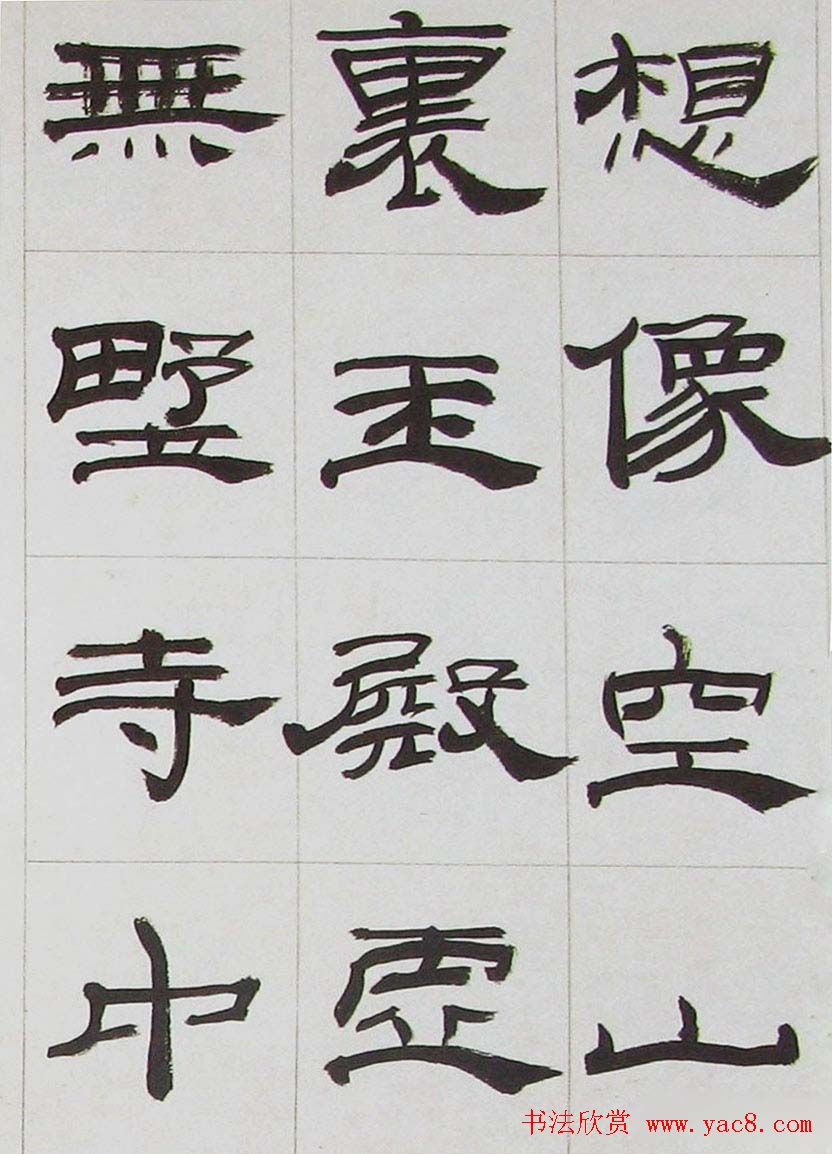 想像空山
裏玉殿虛
無野寺中
书法欣赏 www.yac8.com